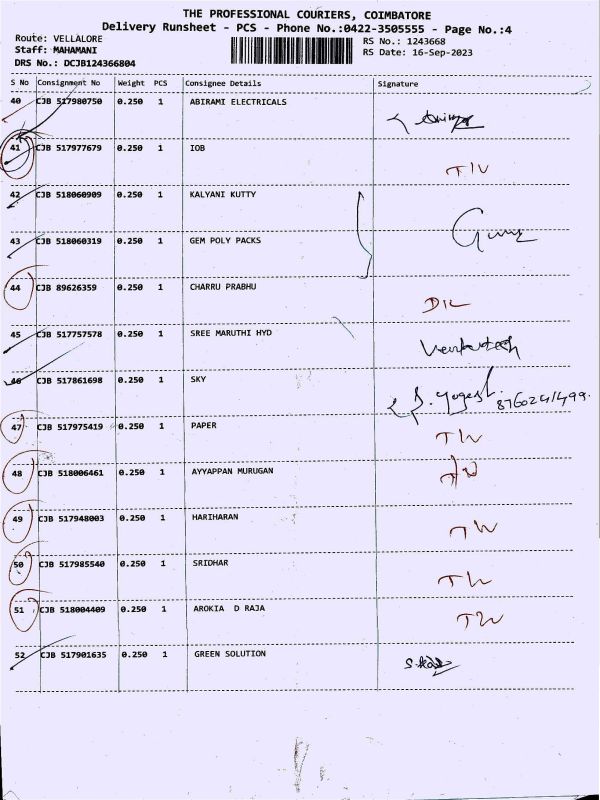 THE PROFESSIONAL COURIERS, COIMBATORE
Delivery Runsheet - PCS - Phone No.:0422-3505555 - Page No.:4
Route: VELLALORE
Staff: MAHAMANI
DRS No.: DCJB124366804
RS No.: 1243668
RS Date: 16-Sep-2023
S No Consignment No Weight PCS Consignee Details Signature
40 CJB 517980750 0.250 1 ABIRAMI ELECTRICALS
41 CJB 517977679 0.250 1 IOB
42 CJB 518060909 0.250 1 KALYANI KUTTY
43 CJB 518060319 0.250 1 GEM POLY PACKS
44 CJB 89626359 0.250 1 CHARRU PRABHU
45 CJB 517757578 0.250 1 SREE MARUTHI HYD
46 CJB 517861698 0.250 1 SKY 8760241499.
47 CJB 517975419 0.250 1 PAPER
48 CJB 518006461 0.250 1 AYYAPPAN MURUGAN
49 CJB 517948003 0.250 1 HARIHARAN
50 CJB 517985540 0.250 1 SRIDHAR
51 CJB 518004409 0.250 1 AROKIA D RAJA
52 CJB 517901635 0.250 1 GREEN SOLUTION